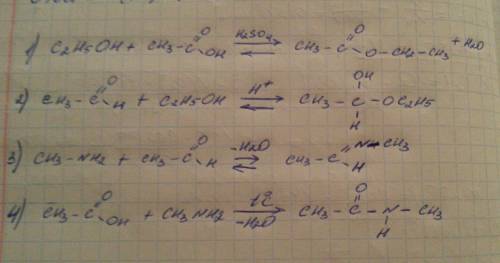 1) C2H5OH + CH3-C(=O)OH ⇄ (H2SO4) CH3-C(=O)O-CH2-CH3 + H2O
2) CH3-C(=O)H + C2H5OH ⇄ (H+) CH3-C(OH)(H)-OC2H5
3) CH3-NH2 + CH3-C(=O)H ⇄ (-H2O) CH3-C(=N-CH3)H
4) CH3-C(=O)OH + CH3NH2 → (t°C, -H2O) CH3-C(=O)-N(H)-CH3